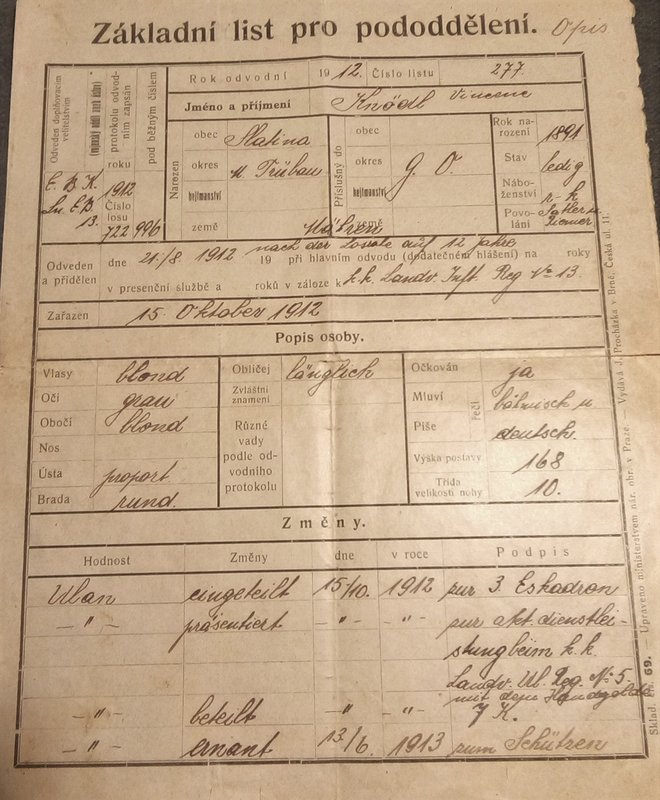 Základní list pro pododdělení. Opis
Odveden doplňovacím velitelstvím
protokolu odvodním zapsán
roku
pod běžným číslem
Rok odvodní 1912. Číslo listu 277.
Jméno a příjmení Knödl Vincenc
Narozen
obec Slatina
okres M Trübau
hejtmanství
země Mähren
Příslušný do
obec
okres G. O.
hejtmanství
země
Rok narození 1891
Stav ledig
Náboženství r-k
Povolání Satler u Riemer
E. B. K. 1912
Ln. E. B. Číslo
13. losu
722 996
Odveden a přidělen dne 21./8. 1912 19 při hlavním odvodu (dodatečném hlášení) na roky
nach der Losote auf 12 Jahre
v presenční službě a roků v záloze k k.k. Landw. Inft. Reg No 13.
Zařazen 15. Oktober 1912
Popis osoby.
Vlasy blond
Oči grau
Obočí blond
Nos
Ústa proport.
Brada rund.
Obličej länglich
Zvláštní znamení
Různé vady podle odvodního protokolu
Očkován ja
Mluví böhmisch u
Píše deutsch.
řečí
Výška postavy 168
Třída velikosti nohy 10.
Změny.
Hodnost Změny dne v roce Podpis
Ulan eingeteilt 15/10. 1912 zur 3. Eskadron
— " — präsentiert — " — — " — zur akt. dienstlei-
stung beim k. k.
Landw. Ul. Reg. No 5.
mit dem Handgelde
— " — beteilt — " — — " — 7 K.
— " — ernant 13./6. 1913 zum Schützen
Sklad. č. 69. — Upraveno ministerstvem nár. obr. v Praze. Vydává J. Procházka v Brně, Česká ul. 11.